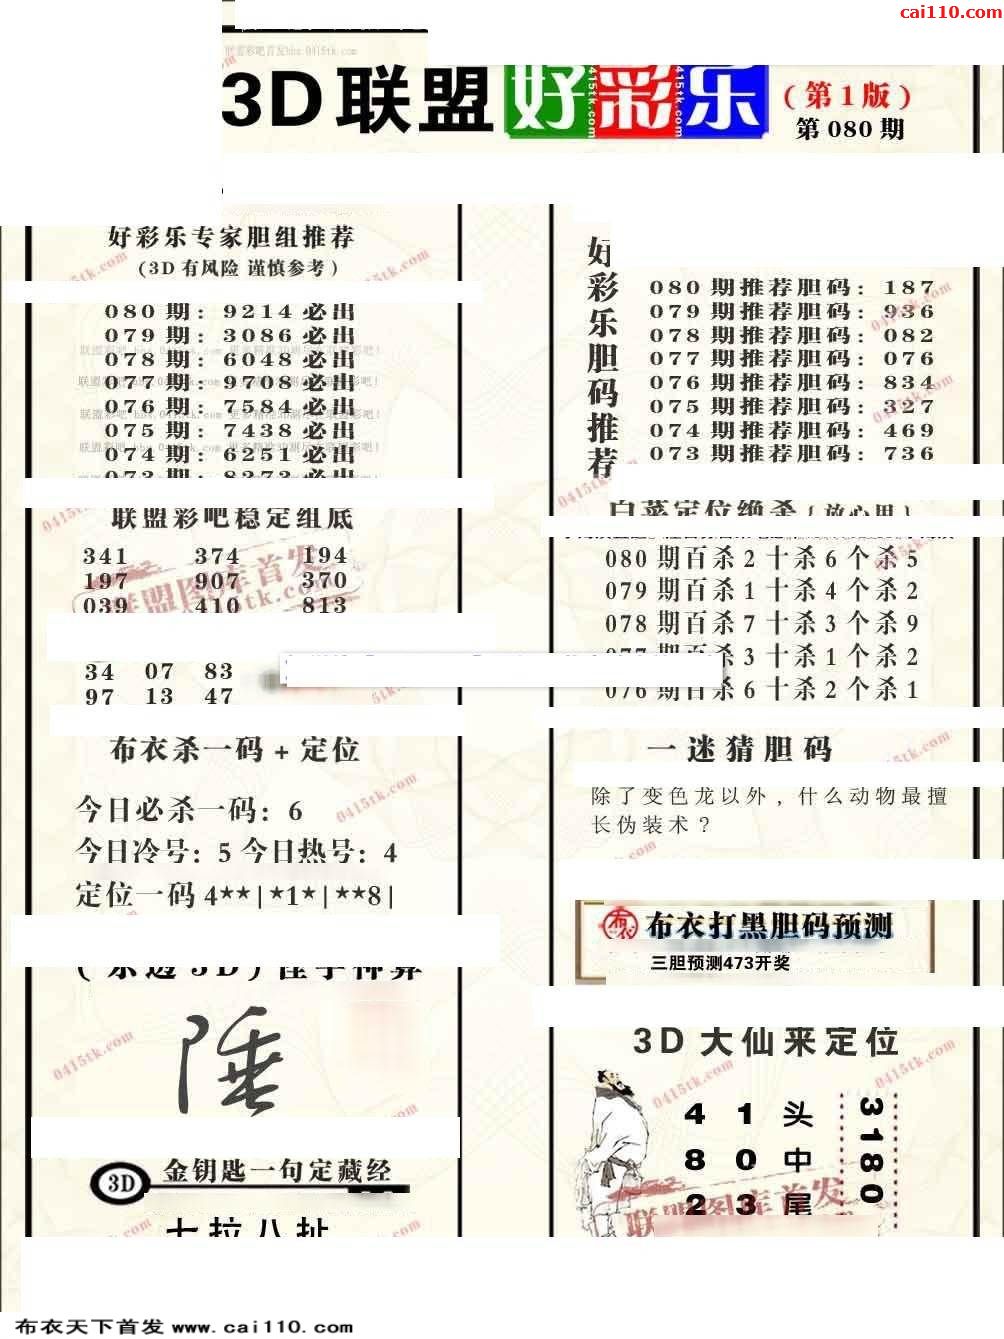 cai110.com
3D联盟好彩乐
(第1版)
第080期
好彩乐专家胆组推荐
(3D有风险 谨慎参考)
080期: 9214必出
079期: 3086必出
078期: 6048必出
077期: 9708必出
076期: 7584必出
075期: 7438必出
074期: 6251必出
联盟彩吧稳定组底
341 374 194
197 907 370
039 410 813
34 07 83
97 13 47
布衣杀一码+定位
今日必杀一码: 6
今日冷号: 5 今日热号: 4
定位一码 4**|*1*|**8|
金钥匙一句定藏经
3D
七拉八扯
好彩乐胆码推荐
080期推荐胆码: 187
079期推荐胆码: 936
078期推荐胆码: 082
077期推荐胆码: 076
076期推荐胆码: 834
075期推荐胆码: 327
074期推荐胆码: 469
073期推荐胆码: 736
白菜定位绝杀{放心用}
080期百杀2十杀6个杀5
079期百杀1十杀4个杀2
078期百杀7十杀3个杀9
077期百杀3十杀1个杀2
076期百杀6十杀2个杀1
一迷猜胆码
除了变色龙以外，什么动物最擅
长伪装术？
布衣打黑胆码预测
三胆预测473开奖
3D大仙来定位
4 1 头
8 0 中
2 3 尾
3180
联盟图库首发
0415tk.com
布衣天下首发 www.cai110.com